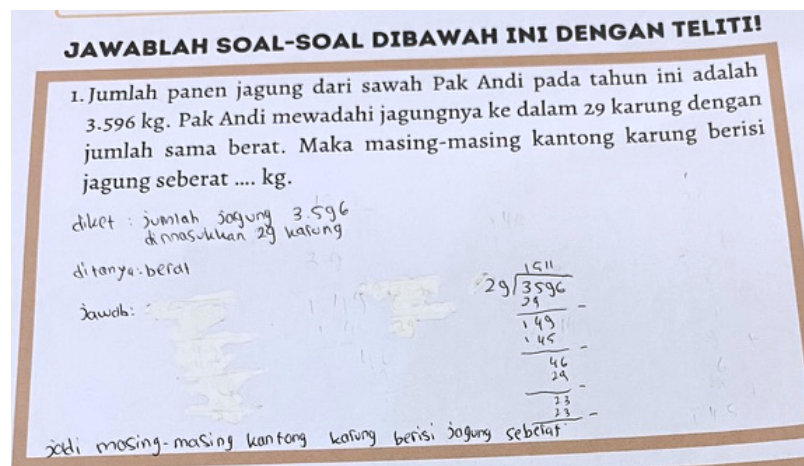 JAWABLAH SOAL-SOAL DIBAWAH INI DENGAN TELITI!
1. Jumlah panen jagung dari sawah Pak Andi pada tahun ini adalah
3.596 kg. Pak Andi mewadahi jagungnya ke dalam 29 karung dengan
jumlah sama berat. Maka masing-masing kantong karung berisi
jagung seberat .... kg.
diket : jumlah jagung 3.596
dimasukkan 29 karung
ditanya : berat
jawab :
1511
29/3596
29 -
149
145 -
46
29 -
23
23 -
jadi masing-masing kantong karung berisi jagung seberat